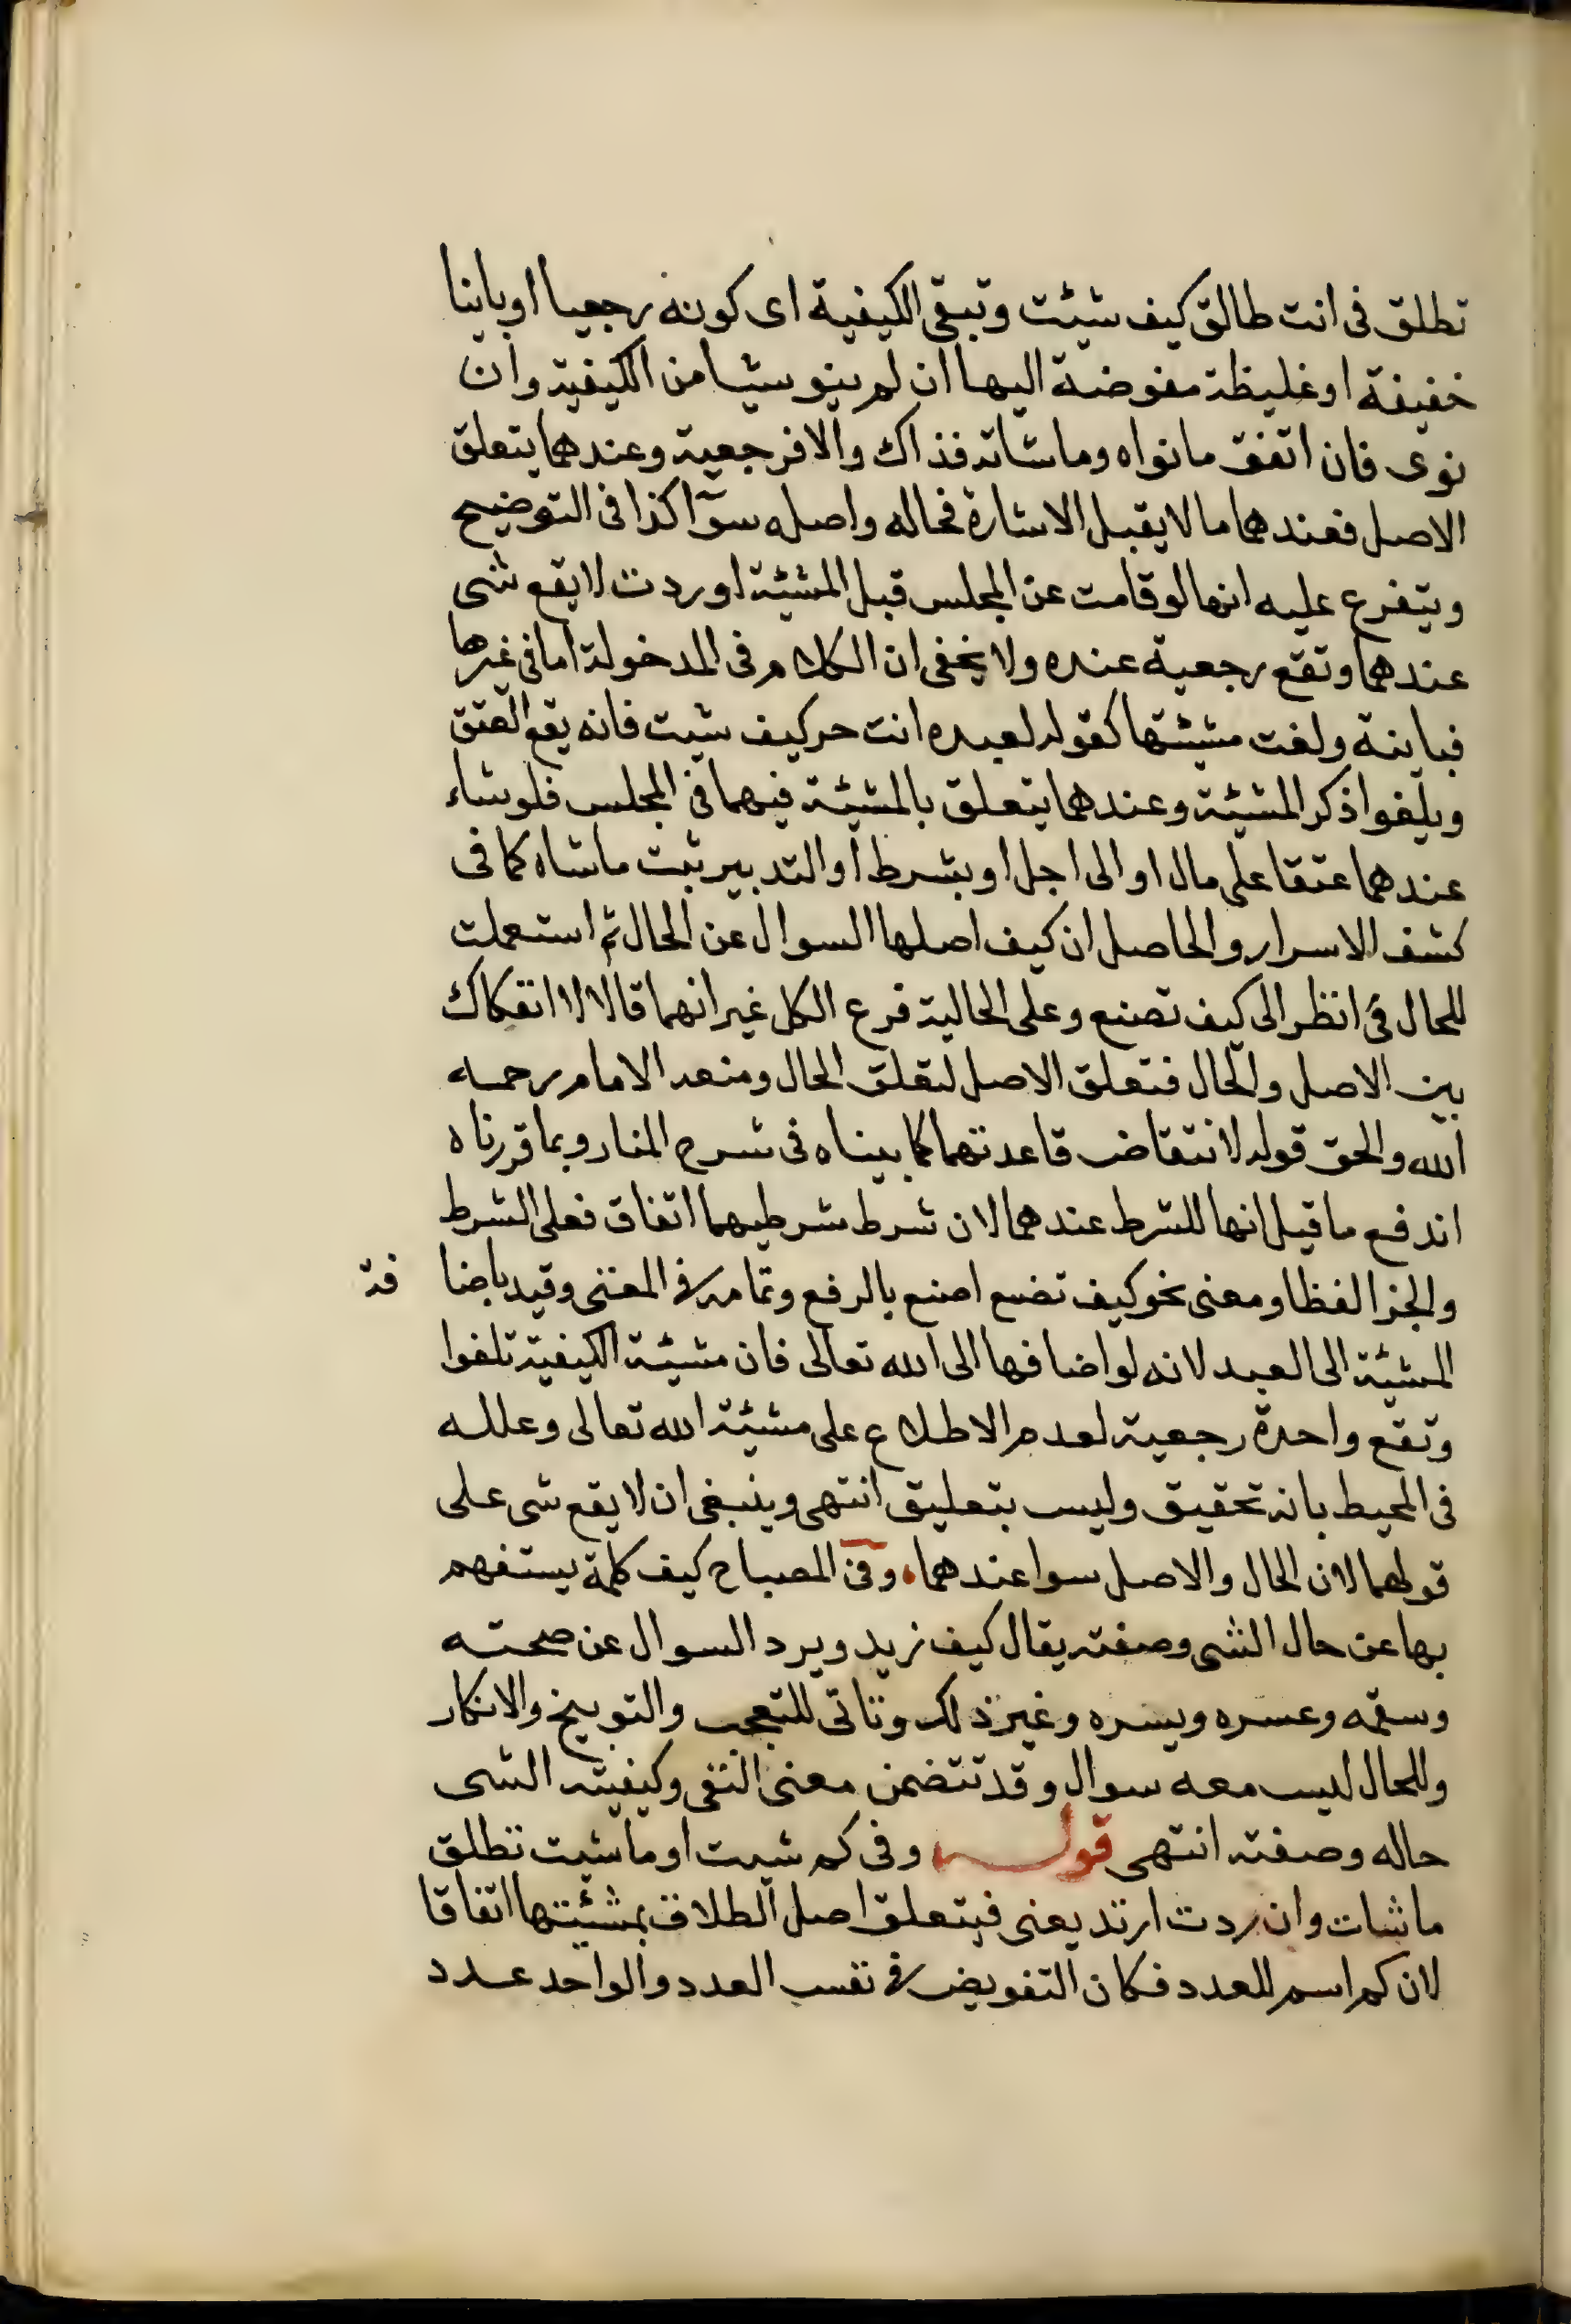 تطلق فى انت طالق كيف شئت وتبقى الكيفية اى كونه رجعيا اوباينا
خفيفة اوغليظة مفوضة اليها ان لم ينو شئا من الكيفية وان
نوى فان اتفق مانواه وماشاته فذاك والا فرجعية وعندهما يتعلق
الاصل فعندهما مالا يقبل الاشارة فحاله واصله سوآ كذا فى التوضيح
ويتفرع عليه انها لوقامت عن المجلس قبل المشئة اوردت لا يقع شى
عندهما وتقع رجعية عنده ولا يخفى ان الكلام فى المدخولة اما فى غيرها
فباينة ولغت مشئتها كقوله لعبده انت حر كيف شيت فانه يقع العتق
ويلغوا ذكر المشئة وعندهما يتعلق بالمشئة فيهما فى المجلس فلوشاء
عندهما عتقا على مال او الى اجل او بشرط او التدبير ثبت ماشاه كما فى
كشف الاسرار والحاصل ان كيف اصلها السوال عن الحال ثم استعملت
للحال فى انظر الى كيف تصنع وعلى الحالية فرع الكل غير انهما قالا لا انفكاك
بين الاصل والحال فتعلق الاصل لتعلق الحال ومنعه الامام رحمه
الله والحق قوله لانتقاض قاعدتهما كما بيناه فى شرح المنار وبما قررناه
اندفع ما قيل انها للشرط عندهما لان شرط شرطيهما اتفاق فعلى الشرط
والجزا لفظا ومعنى نحو كيف تضع اصنع بالرفع وتمامه فى المغنى وقيد باضا فة
المشئة الى العبد لانه لو اضافها الى الله تعالى فان مشئة الكيفية تلغوا
وتقع واحدة رجعية لعدم الاطلاع على مشئة الله تعالى وعلله
فى المحيط بانه تحقيق وليس بتعليق انتهى وينبغى ان لا يقع شى على
قولهما لان الحال والاصل سوا عندهما وفى المصباح كيف كلمة يستفهم
بها عن حال الشى وصفته يقال كيف زيد ويرد السوال عن صحته
وسقمه وعسره ويسره وغير ذلك وتاتى للتعجب والتوبيخ والانكار
وللحال ليس معه سوال وقد تتضمن معنى النفى وكيفية الشى
حاله وصفته انتهى قوله وفى كم شيت او ما شيت تطلق
ما شات وان ردت ارتد يعنى فيتعلق اصل الطلاق بمشئتها اتفاقا
لان كم اسم للعدد فكان التفويض فى نفس العدد والواحد عدد